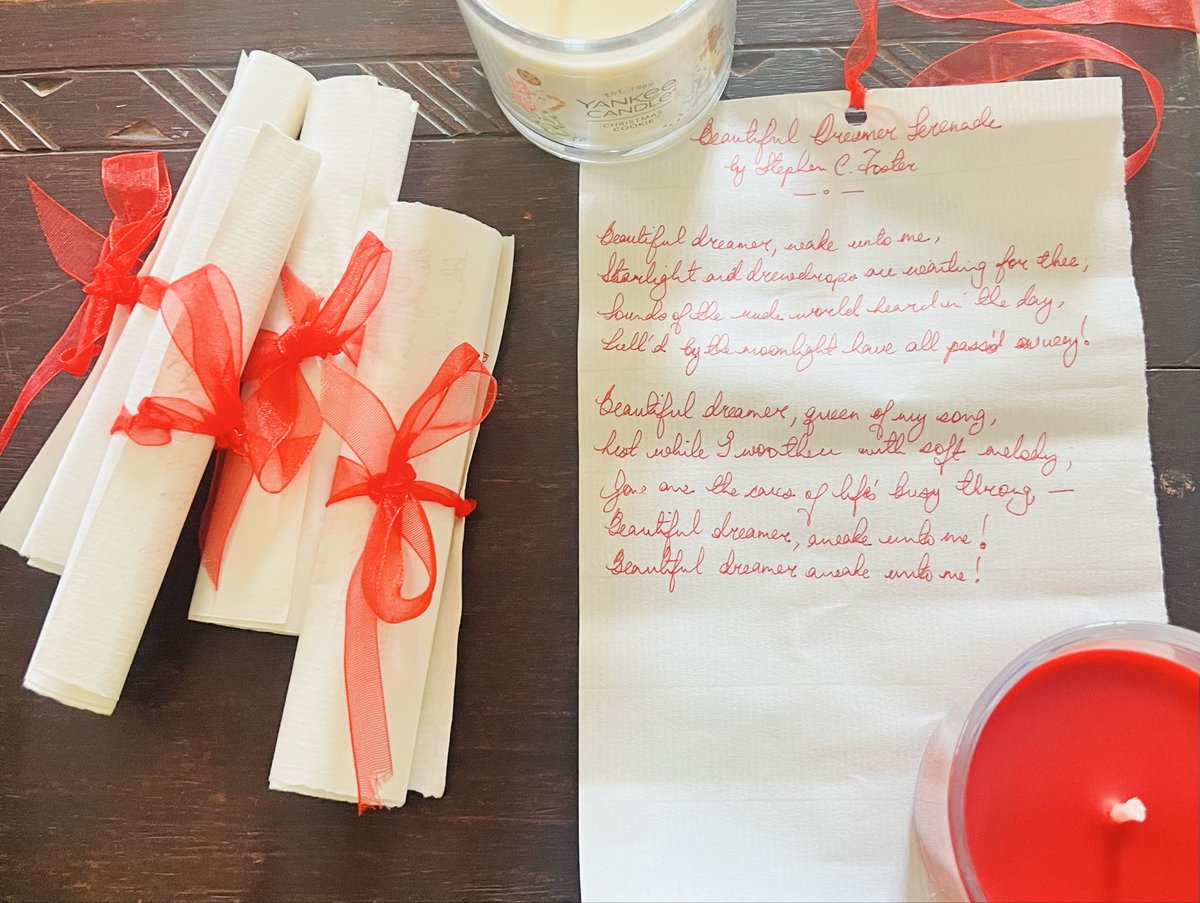 EST. 1969
YANKEE
CANDLE
CHRISTMAS
COOKIE
Beautiful Dreamer Serenade
by Stephen C. Foster
Beautiful dreamer, wake unto me,
Starlight and drewdrops are waiting for thee;
Sounds of the rude world heard in the day,
Lull'd by the moonlight have all pass'd away!
Beautiful dreamer, queen of my song,
List while I woo thee with soft melody;
Gone are the cares of life's busy throng, —
Beautiful dreamer, awake unto me!
Beautiful dreamer awake unto me!